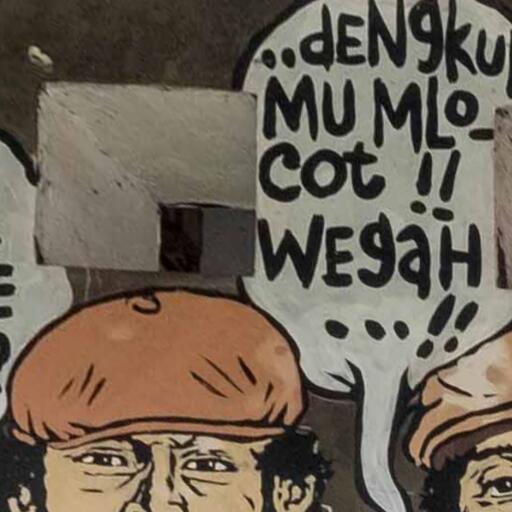 ..dENgkul
MU MLO_
COt !!
WEgaH
...!!